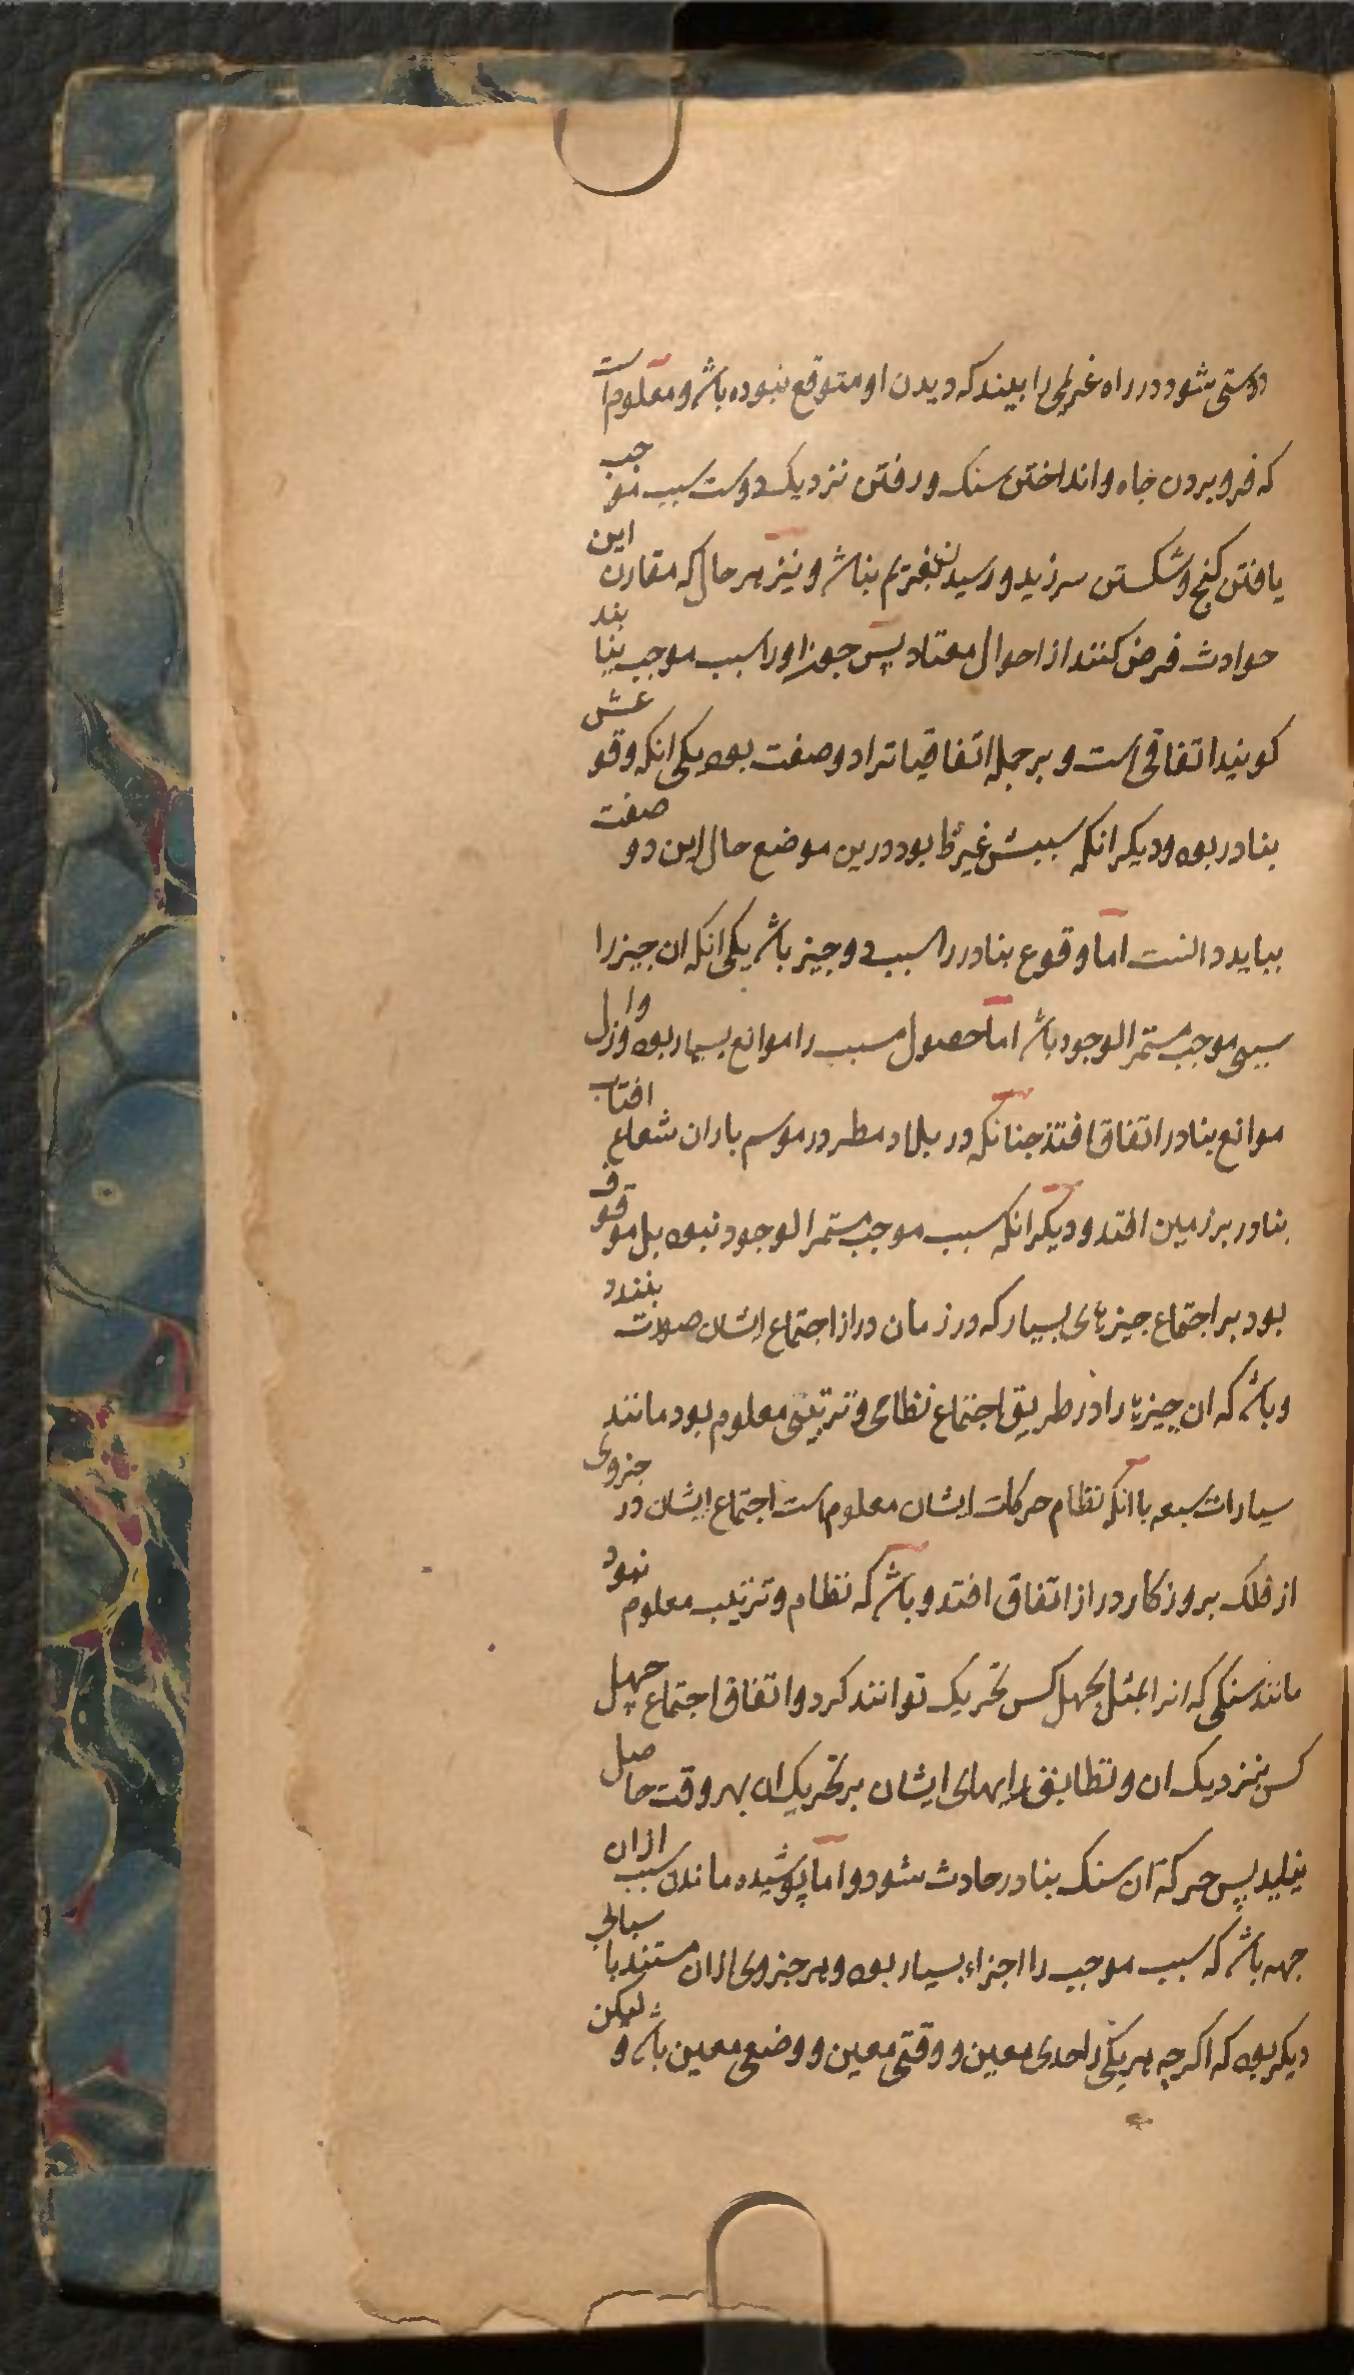 دوستی شود در راه غریمی را بیند که دیدن او متوقع نبوده باشد و معلومست
که فرو بردن چاه و انداختن سنک و رفتن نزدیک دوست سبب موجب
یافتن کنج و شکستن سر زید و رسیدن بغریم نباشد و نیز هر حال که مقارن این
حوادث فرض کنند از احوال معتاد پس چون او را سبب موجب نیابند
کویند اتفاقی است و بر جمله اتفاقیاترا دو صفت بود یکی انکه وقوعش
بنادر بود و دیکر انکه سببش غیر ظ بود درین موضع حال این دو صفت
بباید دانست اما وقوع بنادر را سبب دو چیز باشد یکی انکه ان چیز را
سببی موجب مستمر الوجود باشد اما حصول سبب را موانع بسیار بود و ازال
موانع بنادر اتفاق افتد چنانکه در بلاد مطر در موسم باران شعاع افتاب
بنادر بر زمین افتد و دیکر انکه سبب موجب مستمر الوجود نبود بل موقوف
بود بر اجتماع چیزهای بسیار که در زمان دراز اجتماع ایشان صورت بندد
و باشد که ان چیزها را در طریق اجتماع نظامی و ترتیبی معلوم بود مانند
سیارات سبعه با انکه نظام حرکات ایشان معلوم است اجتماع ایشان در جزوی
از فلک بروزکار دراز اتفاق افتد و باشد که نظام و ترتیب معلوم نبود
مانند سنکی که انرا بمثل بچهل کس تحریک توانند کرد و اتفاق اجتماع چهل
کس بنزدیک ان و تطابق رایهای ایشان بر تحریک ان بهر وقت حاصل
نیاید پس حرکة ان سنک بنادر حادث شود و اما پوشیده ماندن سبب ازان
جهه باشد که سبب موجب را اجزاء بسیار بود و هر جزوی ازان مستند باسبابی
دیکر بود که اکرچه هر یکی را حدی معین و وقتی معین و وضعی معین باشد و لیکن